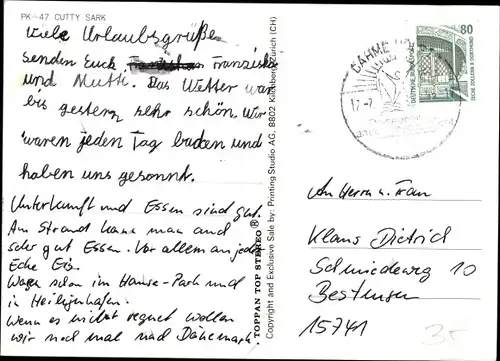 PK-47 CUTTY SARK
Viele Urlaubsgrüße
senden Euch Franziska
und Mutti. Das Wetter war
bis gestern sehr schön. Wir
waren jeden Tag baden und
haben uns gesonnt.
Unterkunft und Essen sind gut.
Am Strand kann man auch
sehr gut Essen. Vor allem an jeder
Ecke Eis.
Waren schon im Hansa-Park und
in Heiligenhafen.
Wenn es nicht regnet wollen
wir noch mal nach Dänemark.
TOPPAN TOP STEREO®
Copyright and Exclusive Sale by: Printing Studio AG, 8802 Kilchberg/Zürich (CH)
DAHME
17.-7
80
DEUTSCHE BUNDESPOST
ZECHE ZOLLERN II · DORTMUND
An Herrn u. Frau
Klaus Dietrich
Schmiedeweg 10
Bestensee
15741